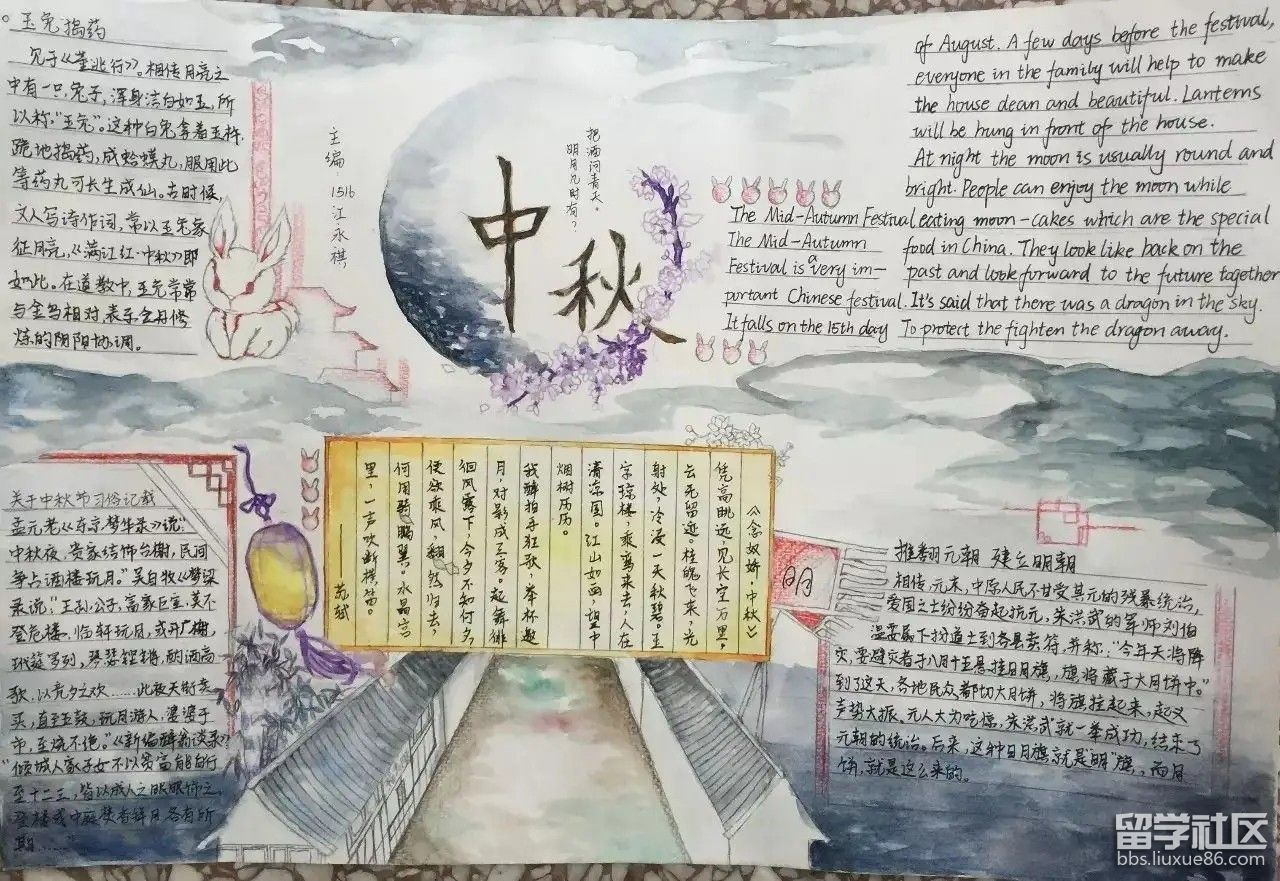 玉兔捣药
见于《董逃行》。相传月亮之
中有一只兔子，浑身洁白如玉，所
以称"玉兔"。这种白兔拿着玉杵，
跪地捣药，成蛤蟆丸，服用此
等药丸可长生成仙。古时候，
文人写诗作词，常以玉兔象
征月亮，《满江红·中秋》即
如此。在道教中，玉兔常常
与金乌相对，表示金丹修
炼的阴阳协调。
主编：1516江永棋
中秋
把酒问青天。
明月几时有？
The Mid-Autumn Festival
The Mid-Autumn
Festival is a very im-
portant Chinese festival.
It falls on the 15th day
of August. A few days before the festival,
everyone in the family will help to make
the house dean and beautiful. Lanterns
will be hung in front of the house.
At night the moon is usually round and
bright. People can enjoy the moon while
eating moon-cakes which are the special
food in China. They look like back on the
past and look forward to the future together
It's said that there was a dragon in the sky.
To protect the fighten the dragon away.
《念奴娇·中秋》
凭高眺远，见长空万里，
云无留迹。桂魄飞来，光
射处，冷浸一天秋碧。玉
宇琼楼，乘鸾来去，人在
清凉国。江山如画，望中
烟树历历。
我醉拍手狂歌，举杯邀
月，对影成三客。起舞徘
徊风露下，今夕不知何夕，
便欲乘风，翻然归去，
何用骑鹏翼。水晶宫
里，一声吹断横笛。
——苏轼
关于中秋节习俗记载
孟元老《东京梦华录》说："
中秋夜，贵家结饰台榭，民间
争占酒楼玩月。"吴自牧《梦梁
录说："王孙公子，富家巨室，莫不
登危楼，临轩玩月，或开广榭，
玳筵罗列，琴瑟铿锵，酌酒高
歌，以竞夕之欢……此夜天街卖
买，直至五鼓，玩月游人，婆娑于
市，至晓不绝。"《新编醉翁谈录》
"倾城人家子女不以贫富能自行
至十二三，皆以成人之服服饰之
登楼或中庭焚香拜月各有所
期……"
明
推翻元朝 建立明朝
相传，元末，中原人民不甘受其元的残暴统治，
爱国之士纷纷奋起抗元，朱洪武的军师刘伯
温嘱属下扮道士到各县卖符，并称："今年天将降
灾，要避灾者于八月十五悬挂日月旗，旗将藏于大月饼中。"
到了这天，各地民众都切大月饼，将旗挂起来，起义
声势大振，元人大为吃惊，朱洪武就一举成功，结束了
元朝的统治。后来，这种日月旗就是"明"旗，而月
饼，就是这么来的。
留学社区
bbs.liuxue86.com